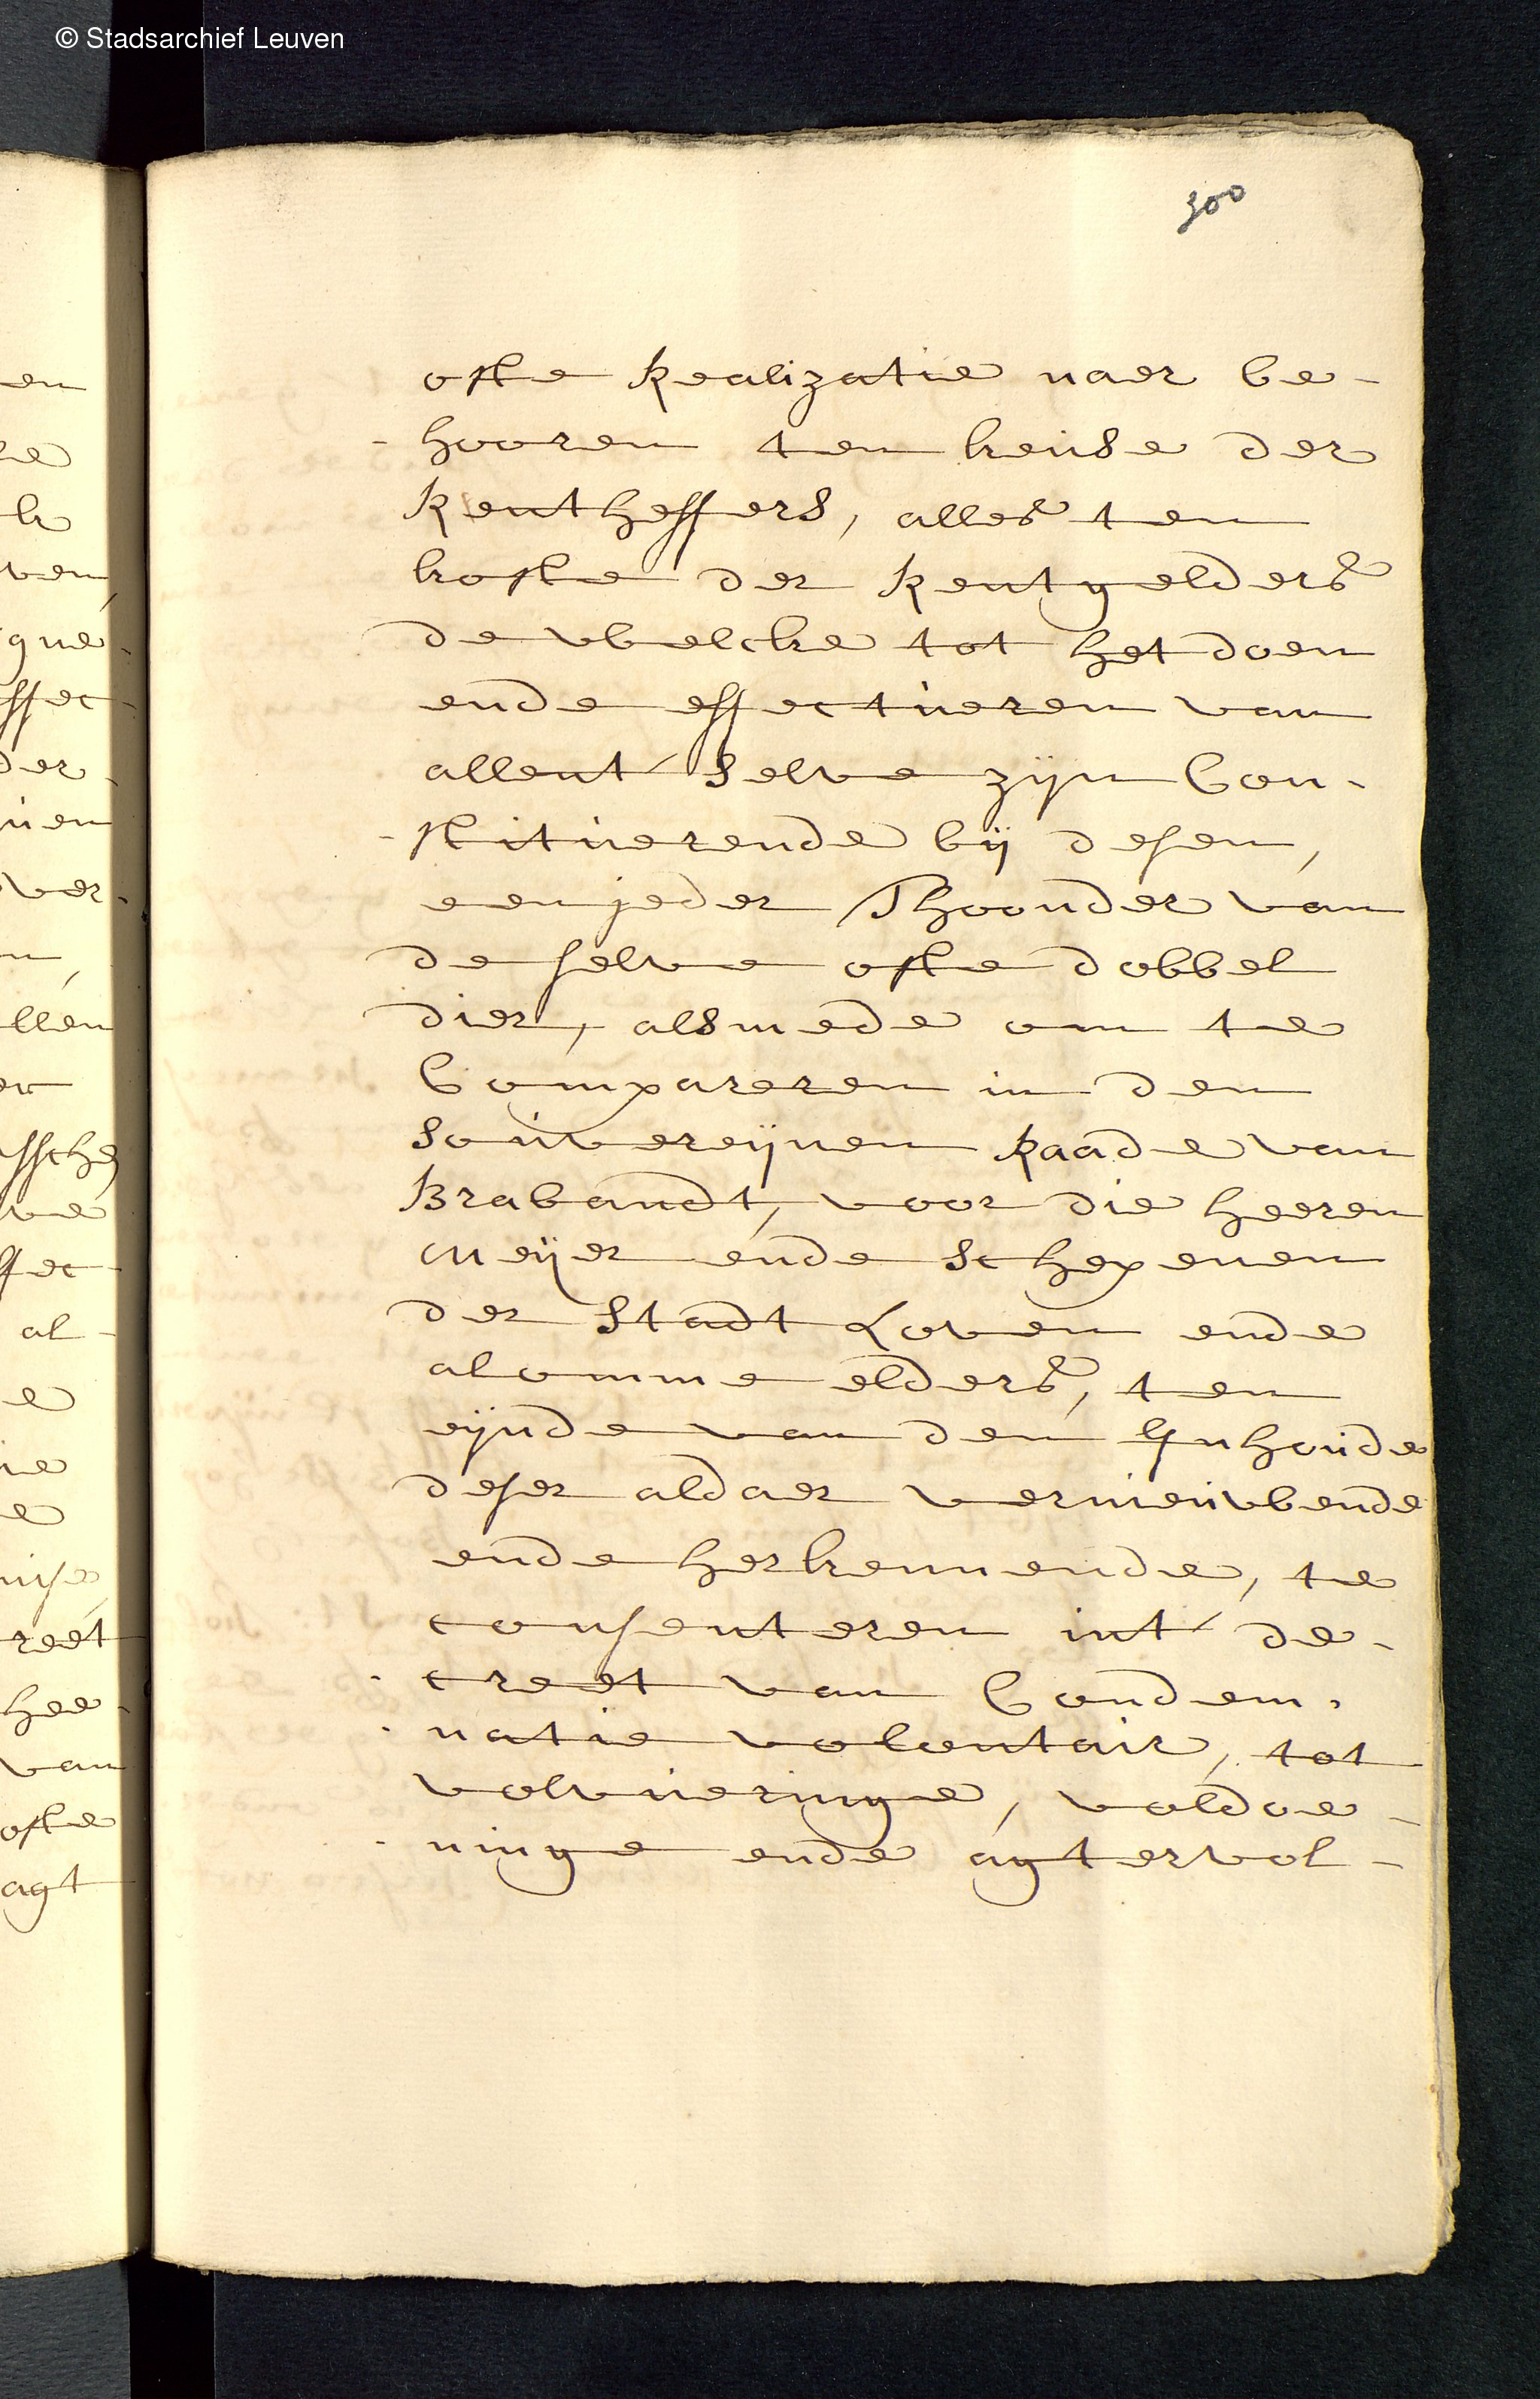 © Stadsarchief Leuven
300
ofte Realizatie naer be-
-hooren ten keuse der
Rentheffers, alles ten
koste der Rentgelders
de wbelcke tot het doen
ende effectueren van
allent selve zijn Con-
-stituerende bij desen,
een jeder Thoonder van
de selve ofte dobbel
dier, alsmede om te
Compareren in den
souvereijnen Raade van
Brabandt, voor die heeren
Meijer ende schepenen
der stadt Loven ende
alomme elders, ten
eijnde van den Inhoude
deser aldaer vernieuwbende
ende herkennende, te
consenteren int de-
-creet van Condem-
-natie volontair, tot
volvueringe, voldoe-
-ninge ende agtervol-
en
ven
que-
ffec-
der-
uen
ver-
llen
ssche
ve
ffec-
al-
reet
hee-
van
ofte
agt